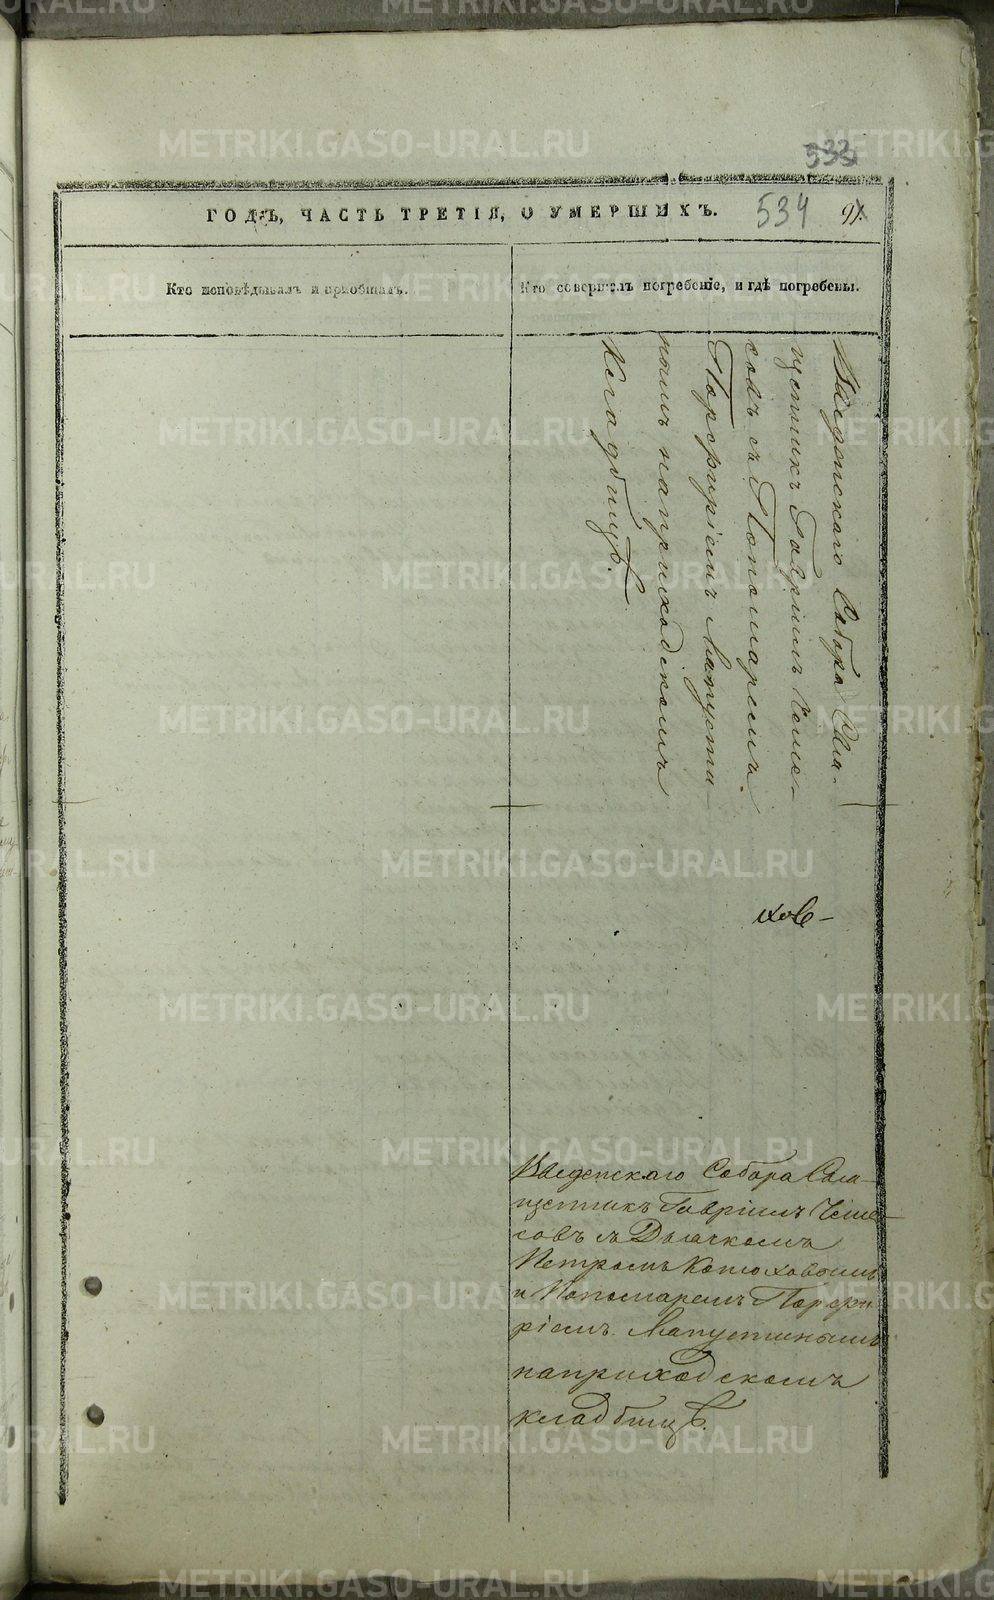 533
ГОДЪ, ЧАСТЬ ТРЕТІЯ, О УМЕРШИХЪ.
534
91
Кто исповѣдывалъ и пріобщалъ.
Кто совершилъ погребеніе, и гдѣ погребены.
Введенскаго Собора Свя-
щенникъ Гавріилъ Чеме-
совъ съ Пономаремъ
Порфиріемъ Лапусти-
нымъ на приходскомъ
Кладбищѣ.
Введенскаго Собора Свя-
щенникъ Гавріилъ Чеме-
совъ съ Дьячкомъ
Петромъ Конюховымъ
и Пономаремъ Порфи
ріемъ Лапустинымъ
на приходскомъ
кладбищѣ.
METRIKI.GASO-URAL.RU